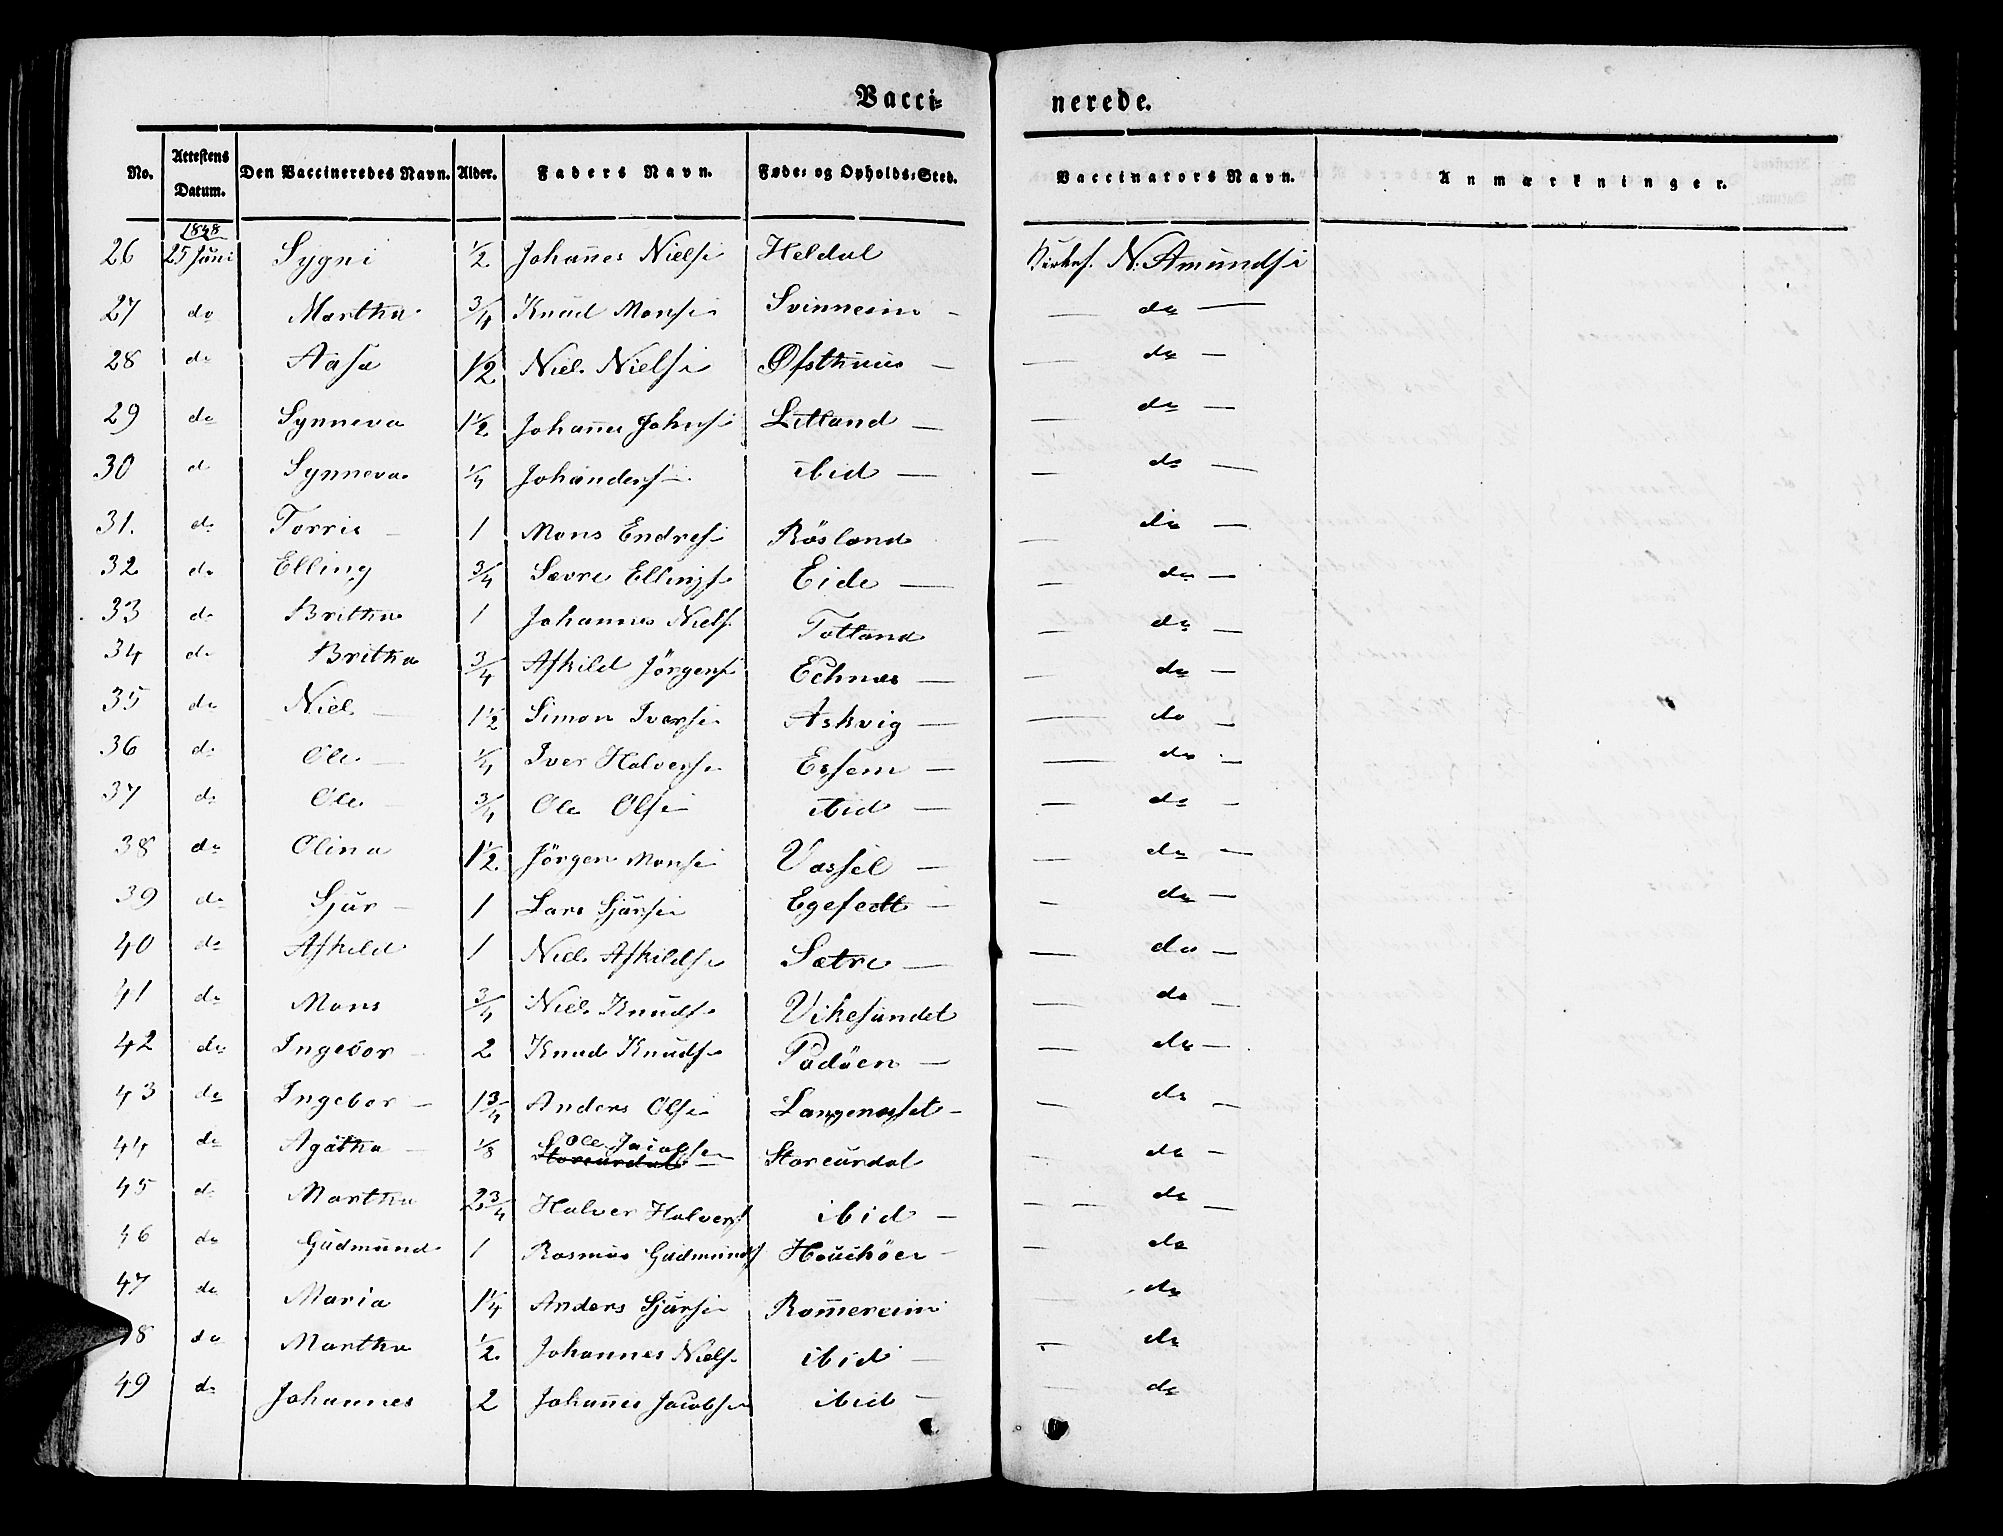 Vacci- nerede.
No. Attestens Datum. Den Vaccineredes Navn. Alder. Faders Navn. Føde- og Opholds-Sted. Vaccinators Navn. Anmærkninger.
1848
26 25 Juni Sygni 1/2 Johannes Nielse Heldal N. Amundse
27 do Martha 3/4 Knud Monse Svinneim — do —
28 do Aasa 1/2 Niels Nielse Øfsthuus — do —
29 do Synneva 1 1/2 Johannes Johnse Litland — do —
30 do Synneva 1/4 ibid — do —
31. do Torris 1 Mons Endrese Røsland — do —
32 do Elling 3/4 Sævre Ellingse Eide — do —
33 do Britha 1 Johannes Niels Totland — do —
34 do Britha 3/4 Askild Jörgense Echnæs — do —
35 do Niels 1 1/2 Simon Iverse Askvig — do —
36 do Ole 1/4 Iver Halverse Essem — do —
37 do Ole 3/4 Ole Olse ibid — do —
38 do Olina 1 1/2 Jörgen Monse Vassel — do —
39 do Sjur 1 Lars Sjurse — do —
40 do Askild 1 Niels Askildse Sætre — do —
41 do Mons 3/4 Niels Knudse Vikesundet — do —
42 do Ingebor 2 Knud Knudse Padöen — do —
43 do Ingebor 1 3/4 Anders Olse Langenæset — do —
44 do Agatha 1/8 Ole Jacobsen Storeurdal — do —
45 do Martha 2 3/4 Halver Halvers ibid — do —
46 do Gudmund 1 Rasmus Gudmunds — do
47 do Maria 1 1/4 Anders Sjurse Rommereim do
48 do Martha 1/2 Johannes Niels ibid — do
49 do Johannes 2 Johannes Jacobse ibid — do